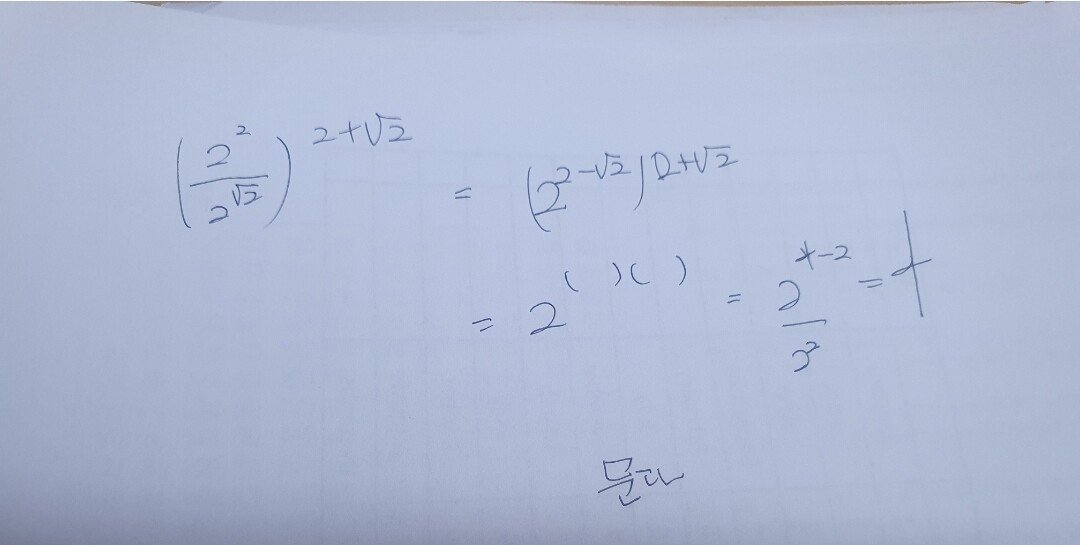 (2²/2^√2)^2+√2 = (2^2-√2)^2+√2
= 2^( )( ) = 2^4-2 = 4
2²
문과